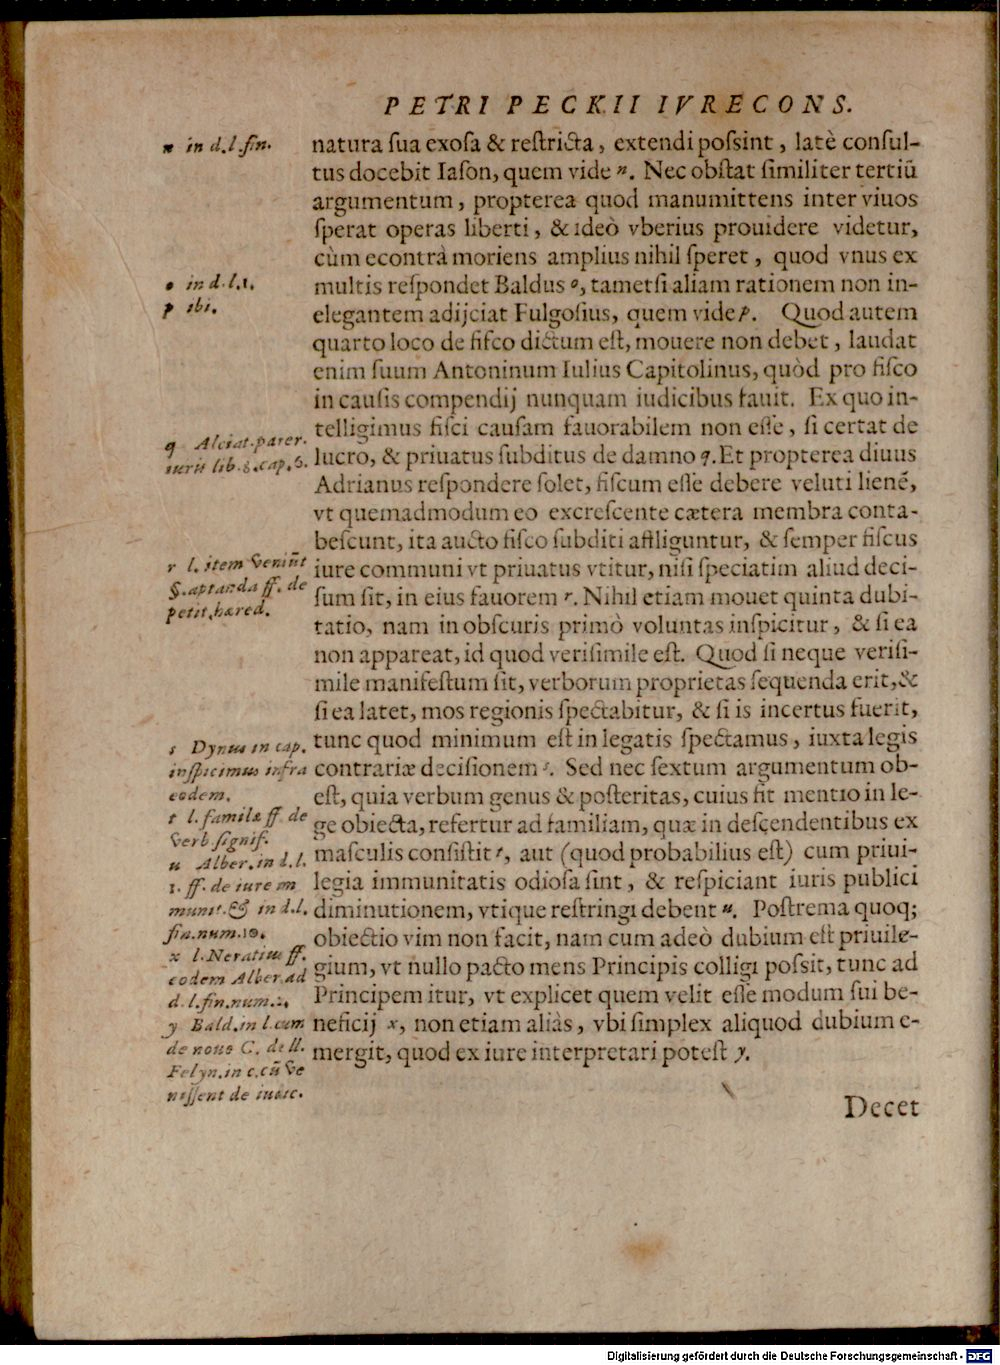 PETRI PECKII IVRECONS.
natura ſua exoſa & reſtricta, extendi poſsint, latè conſul-
tus docebit Iaſon, quem vide n. Nec obſtat ſimiliter tertiū
argumentum, propterea quod manumittens inter viuos
ſperat operas liberti, & ideò vberius prouidere videtur,
cùm econtrà moriens amplius nihil ſperet, quod vnus ex
multis reſpondet Baldus o, tametſi aliam rationem non in-
elegantem adijciat Fulgoſius, quem vide p. Quod autem
quarto loco de fiſco dictum eſt, mouere non debet, laudat
enim ſuum Antoninum Iulius Capitolinus, quòd pro fiſco
in cauſis compendij nunquam iudicibus fauit. Ex quo in-
telligimus fiſci cauſam fauorabilem non eſſe, ſi certat de
lucro, & priuatus ſubditus de damno q. Et propterea diuus
Adrianus reſpondere ſolet, fiſcum eſſe debere veluti lienē,
vt quemadmodum eo excreſcente cætera membra conta-
beſcunt, ita aucto fiſco ſubditi affliguntur, & ſemper fiſcus
iure communi vt priuatus vtitur, niſi ſpeciatim aliud deci-
ſum ſit, in eius fauorem r. Nihil etiam mouet quinta dubi-
tatio, nam in obſcuris primò voluntas inſpicitur, & ſi ea
non appareat, id quod veriſimile eſt. Quod ſi neque veriſi-
mile manifeſtum ſit, verborum proprietas ſequenda erit, &
ſi ea latet, mos regionis ſpectabitur, & ſi is incertus fuerit,
tunc quod minimum eſt in legatis ſpectamus, iuxta legis
contrariæ deciſionem s. Sed nec ſextum argumentum ob-
eſt, quia verbum genus & poſteritas, cuius fit mentio in le-
ge obiecta, refertur ad familiam, quæ in deſcendentibus ex
maſculis conſiſtit t, aut (quod probabilius eſt) cum priui-
legia immunitatis odioſa ſint, & reſpiciant iuris publici
diminutionem, vtique reſtringi debent u. Poſtrema quoq;
obiectio vim non facit, nam cum adeò dubium eſt priuile-
gium, vt nullo pacto mens Principis colligi poſsit, tunc ad
Principem itur, vt explicet quem velit eſſe modum ſui be-
neficij x, non etiam aliàs, vbi ſimplex aliquod dubium e-
mergit, quod ex iure interpretari poteſt y.
Decet
n in d.l.fin.
o in d.l.1.
p ibi.
q Alciat.parer.
iuris lib.8.cap.6.
r l.item veniūt
§.aptanda ff. de
petit.hæred.
s Dynus in cap.
inſpicimus infra
eodem.
t l.familæ ff. de
verb ſignif.
u Alber.in d.l.
1. ff. de iure im
munit.& in d.l.
fin.num.10.
x l.Neratius ff.
eodem Alber.ad
d.l.fin.num.2.
y Bald.in l.cum
de nouo C. de ll.
Felyn.in c.cū ve
niſſent de iudic.
Digitalisierung gefördert durch die Deutsche Forschungsgemeinschaft - DFG